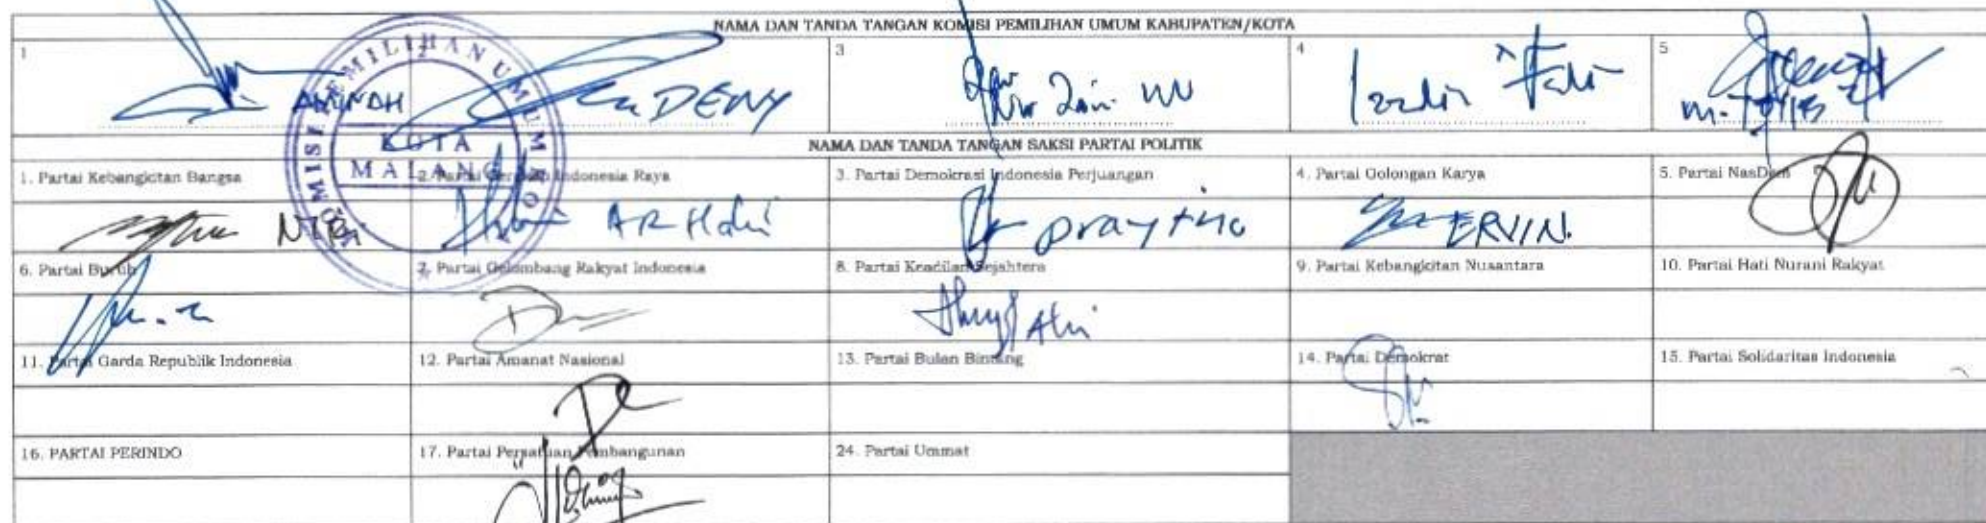 NAMA DAN TANDA TANGAN KOMISI PEMILIHAN UMUM KABUPATEN/KOTA
1 2 3 4 5
AMINAH DENY
KOMISI PEMILIHAN UMUM
KOTA
MALANG
NAMA DAN TANDA TANGAN SAKSI PARTAI POLITIK
1. Partai Kebangkitan Bangsa 2. Partai Gerakan Indonesia Raya 3. Partai Demokrasi Indonesia Perjuangan 4. Partai Golongan Karya 5. Partai NasDem
prayitno ERVIN.
6. Partai Buruh 7. Partai Gelombang Rakyat Indonesia 8. Partai Keadilan Sejahtera 9. Partai Kebangkitan Nusantara 10. Partai Hati Nurani Rakyat
11. Partai Garda Republik Indonesia 12. Partai Amanat Nasional 13. Partai Bulan Bintang 14. Partai Demokrat 15. Partai Solidaritas Indonesia
16. PARTAI PERINDO 17. Partai Persatuan Pembangunan 24. Partai Ummat